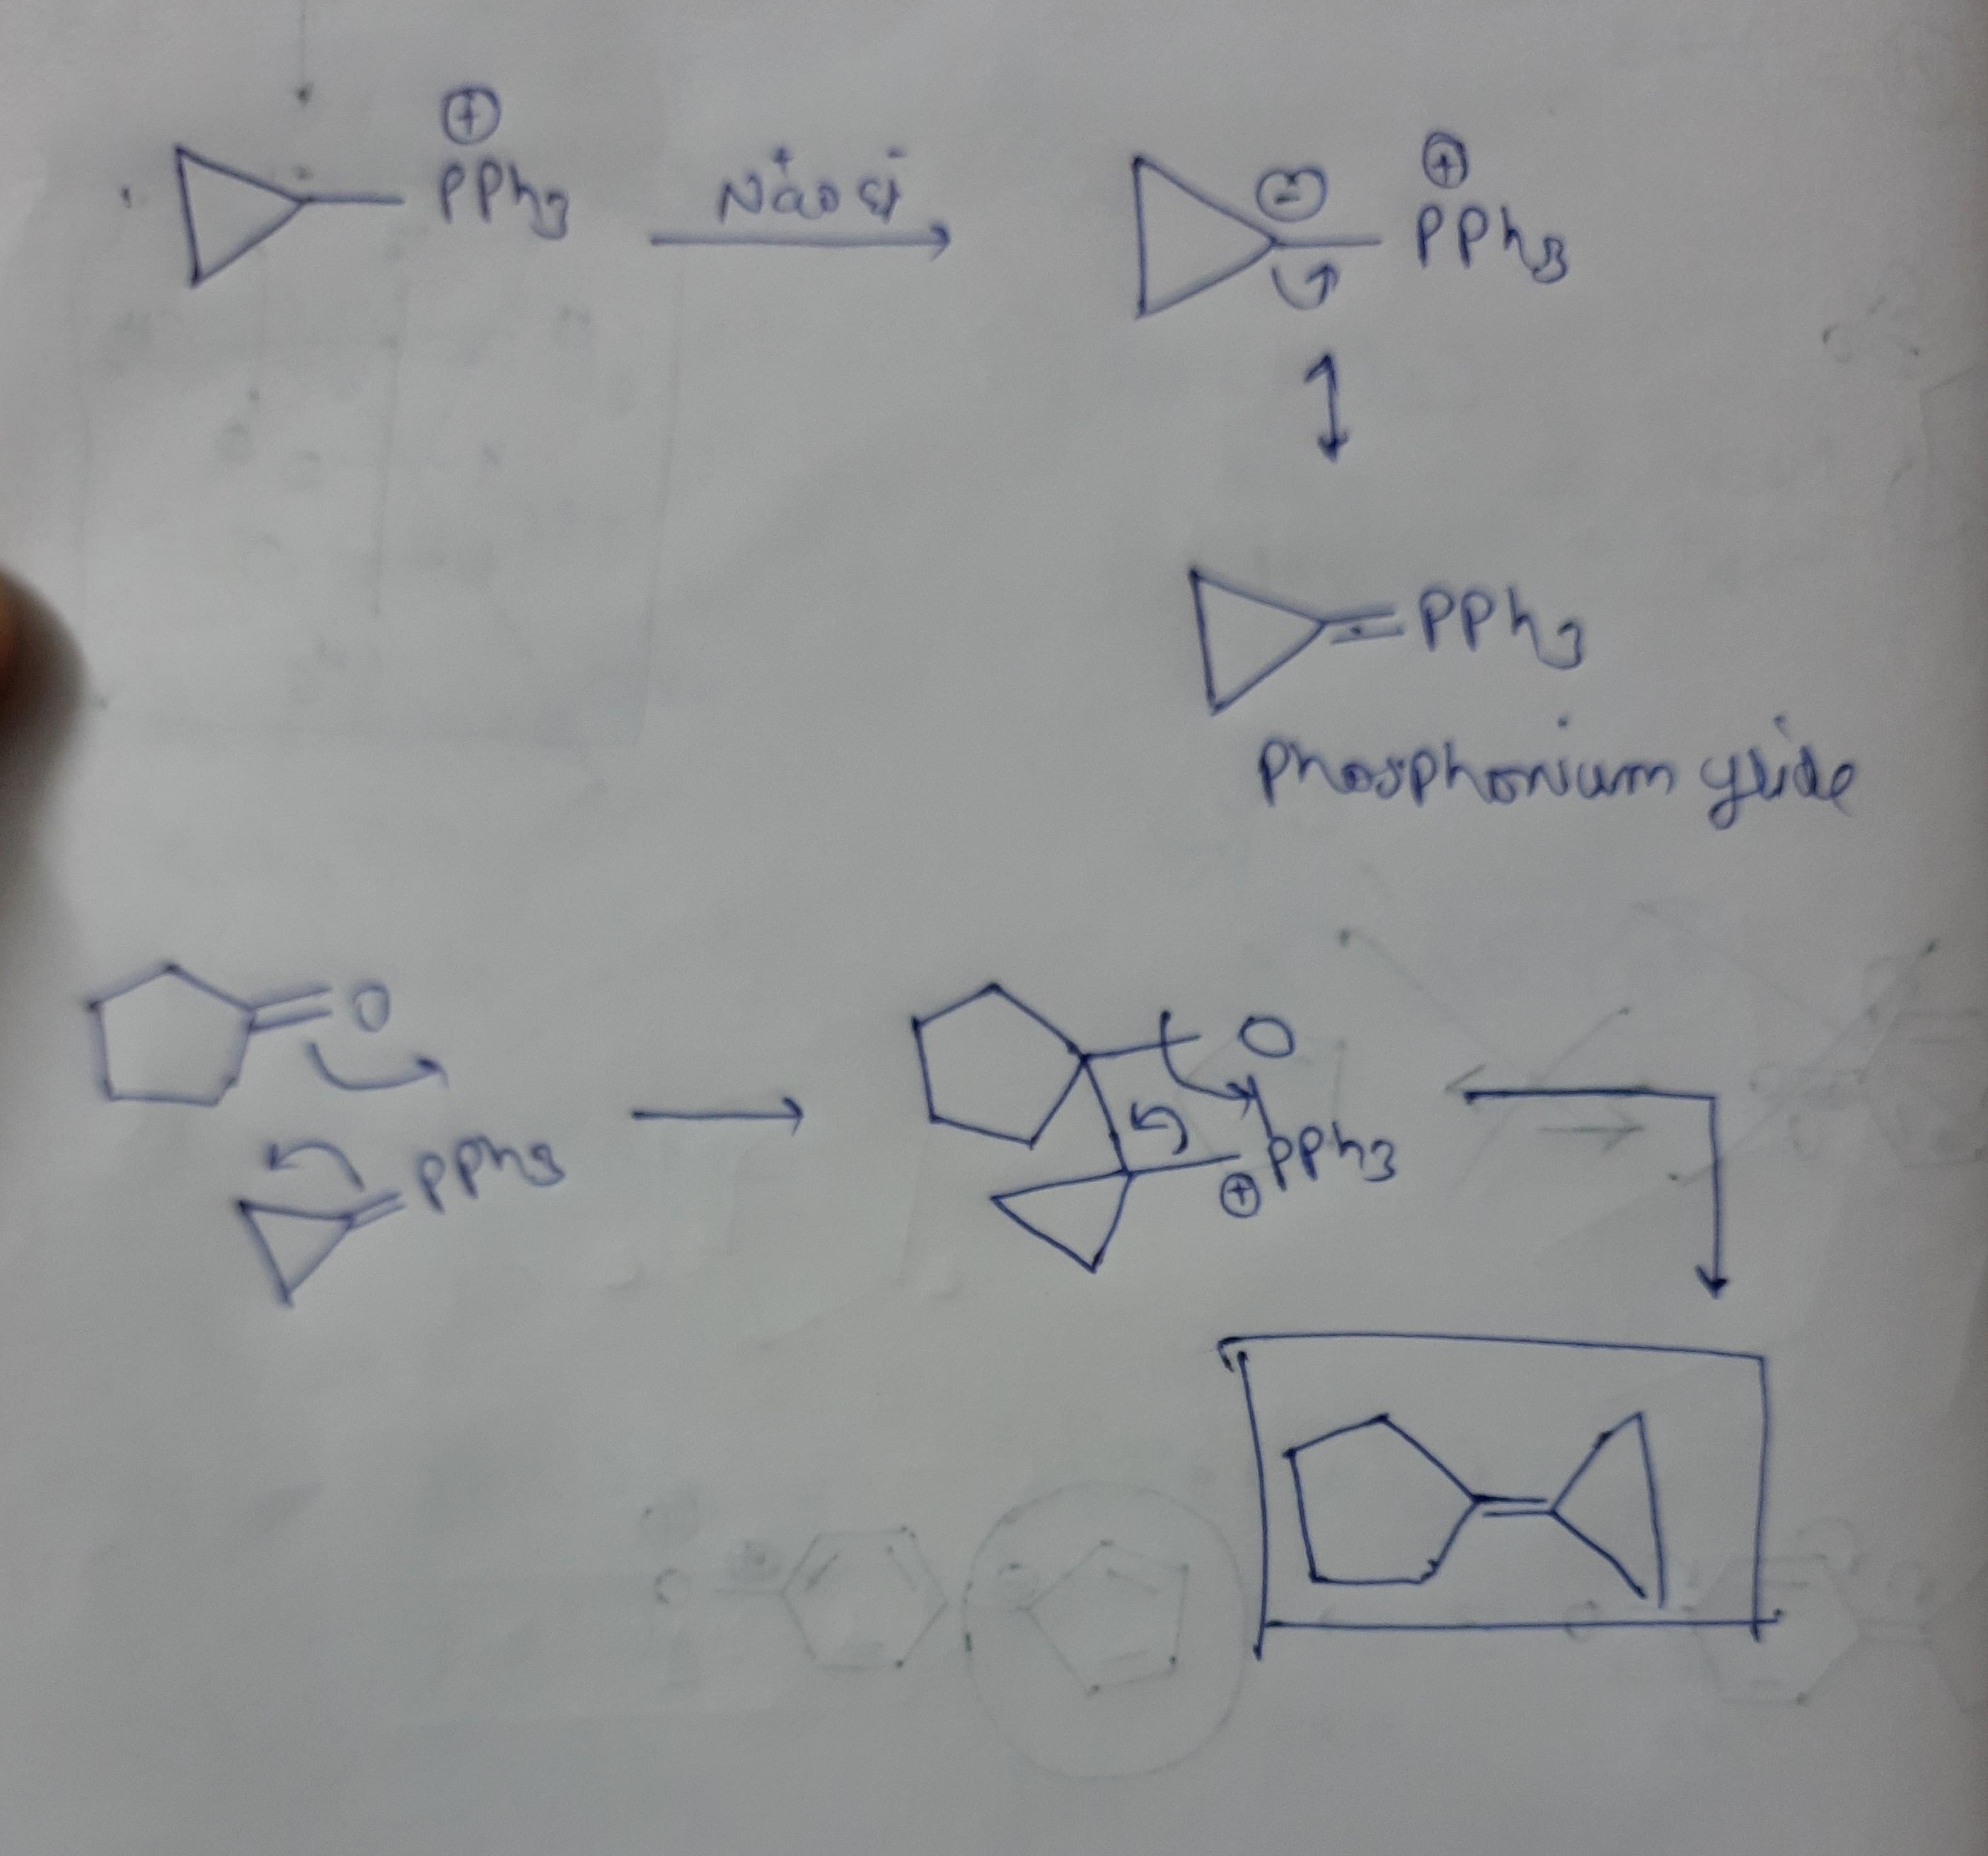 ⊕
PPh3
Na+OEt-
⊖ ⊕
PPh3
=PPh3
Phosphonium ylide
=O
O
PPh3
⊕ PPh3